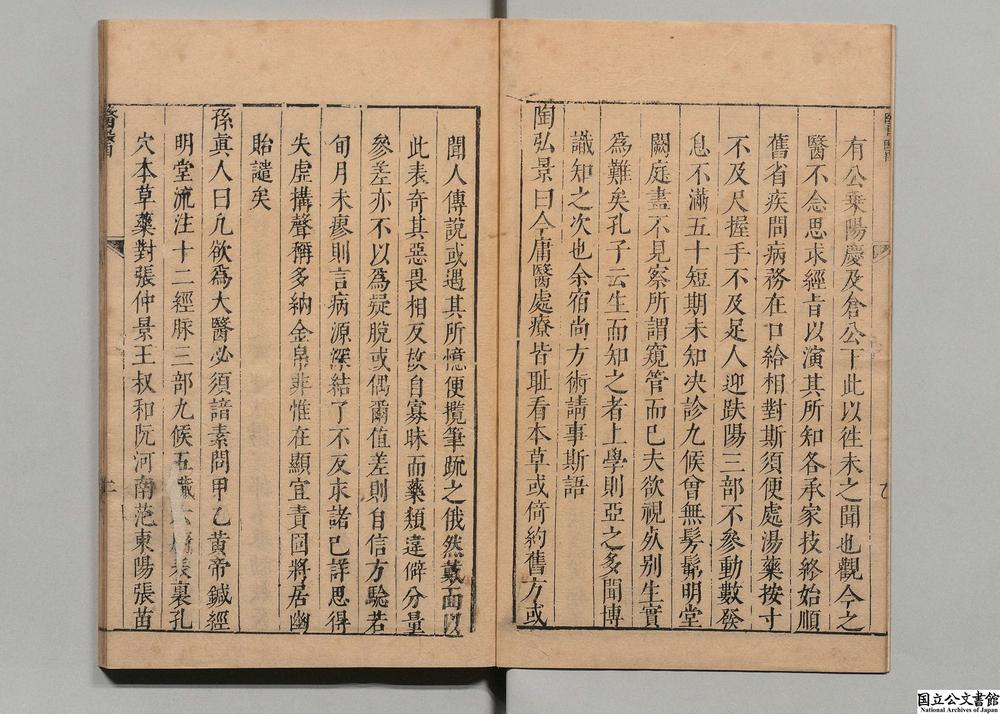 有公乘陽慶及倉公下此以徃未之聞也觀今之
醫不念思求經旨以演其所知各承家技終始順
舊省疾問病務在口給相對斯須便處湯藥按寸
不及尺握手不及足人迎趺陽三部不參動數發
息不滿五十短期未知决診九候曾無髣髴明堂
闕庭盡不見察所謂窺管而已夫欲視死别生實
爲難矣孔子云生而知之者上學則亞之多聞博
識知之次也余宿尚方術請事斯語
陶弘景曰今庸醫處療皆耻看本草或倚約舊方或
聞人傳說或遇其所憶便攬筆疏之俄然戴面以
此表奇其惡畏相反故自寡昧而藥類違僻分量
參差亦不以爲疑脫或偶爾值差則自信方驗若
旬月未瘳則言病源深結了不反求諸己詳思得
失虚搆聲稱多納金帛非惟在顯宜責固將居幽
貽譴矣
孫眞人曰凢欲爲大醫必須諳素問甲乙黄帝鍼經
明堂流注十二經脉三部九候五臟六腑表裏孔
穴本草藥對張仲景王叔和阮河南范東陽張苗
二
国立公文書館
National Archives of Japan